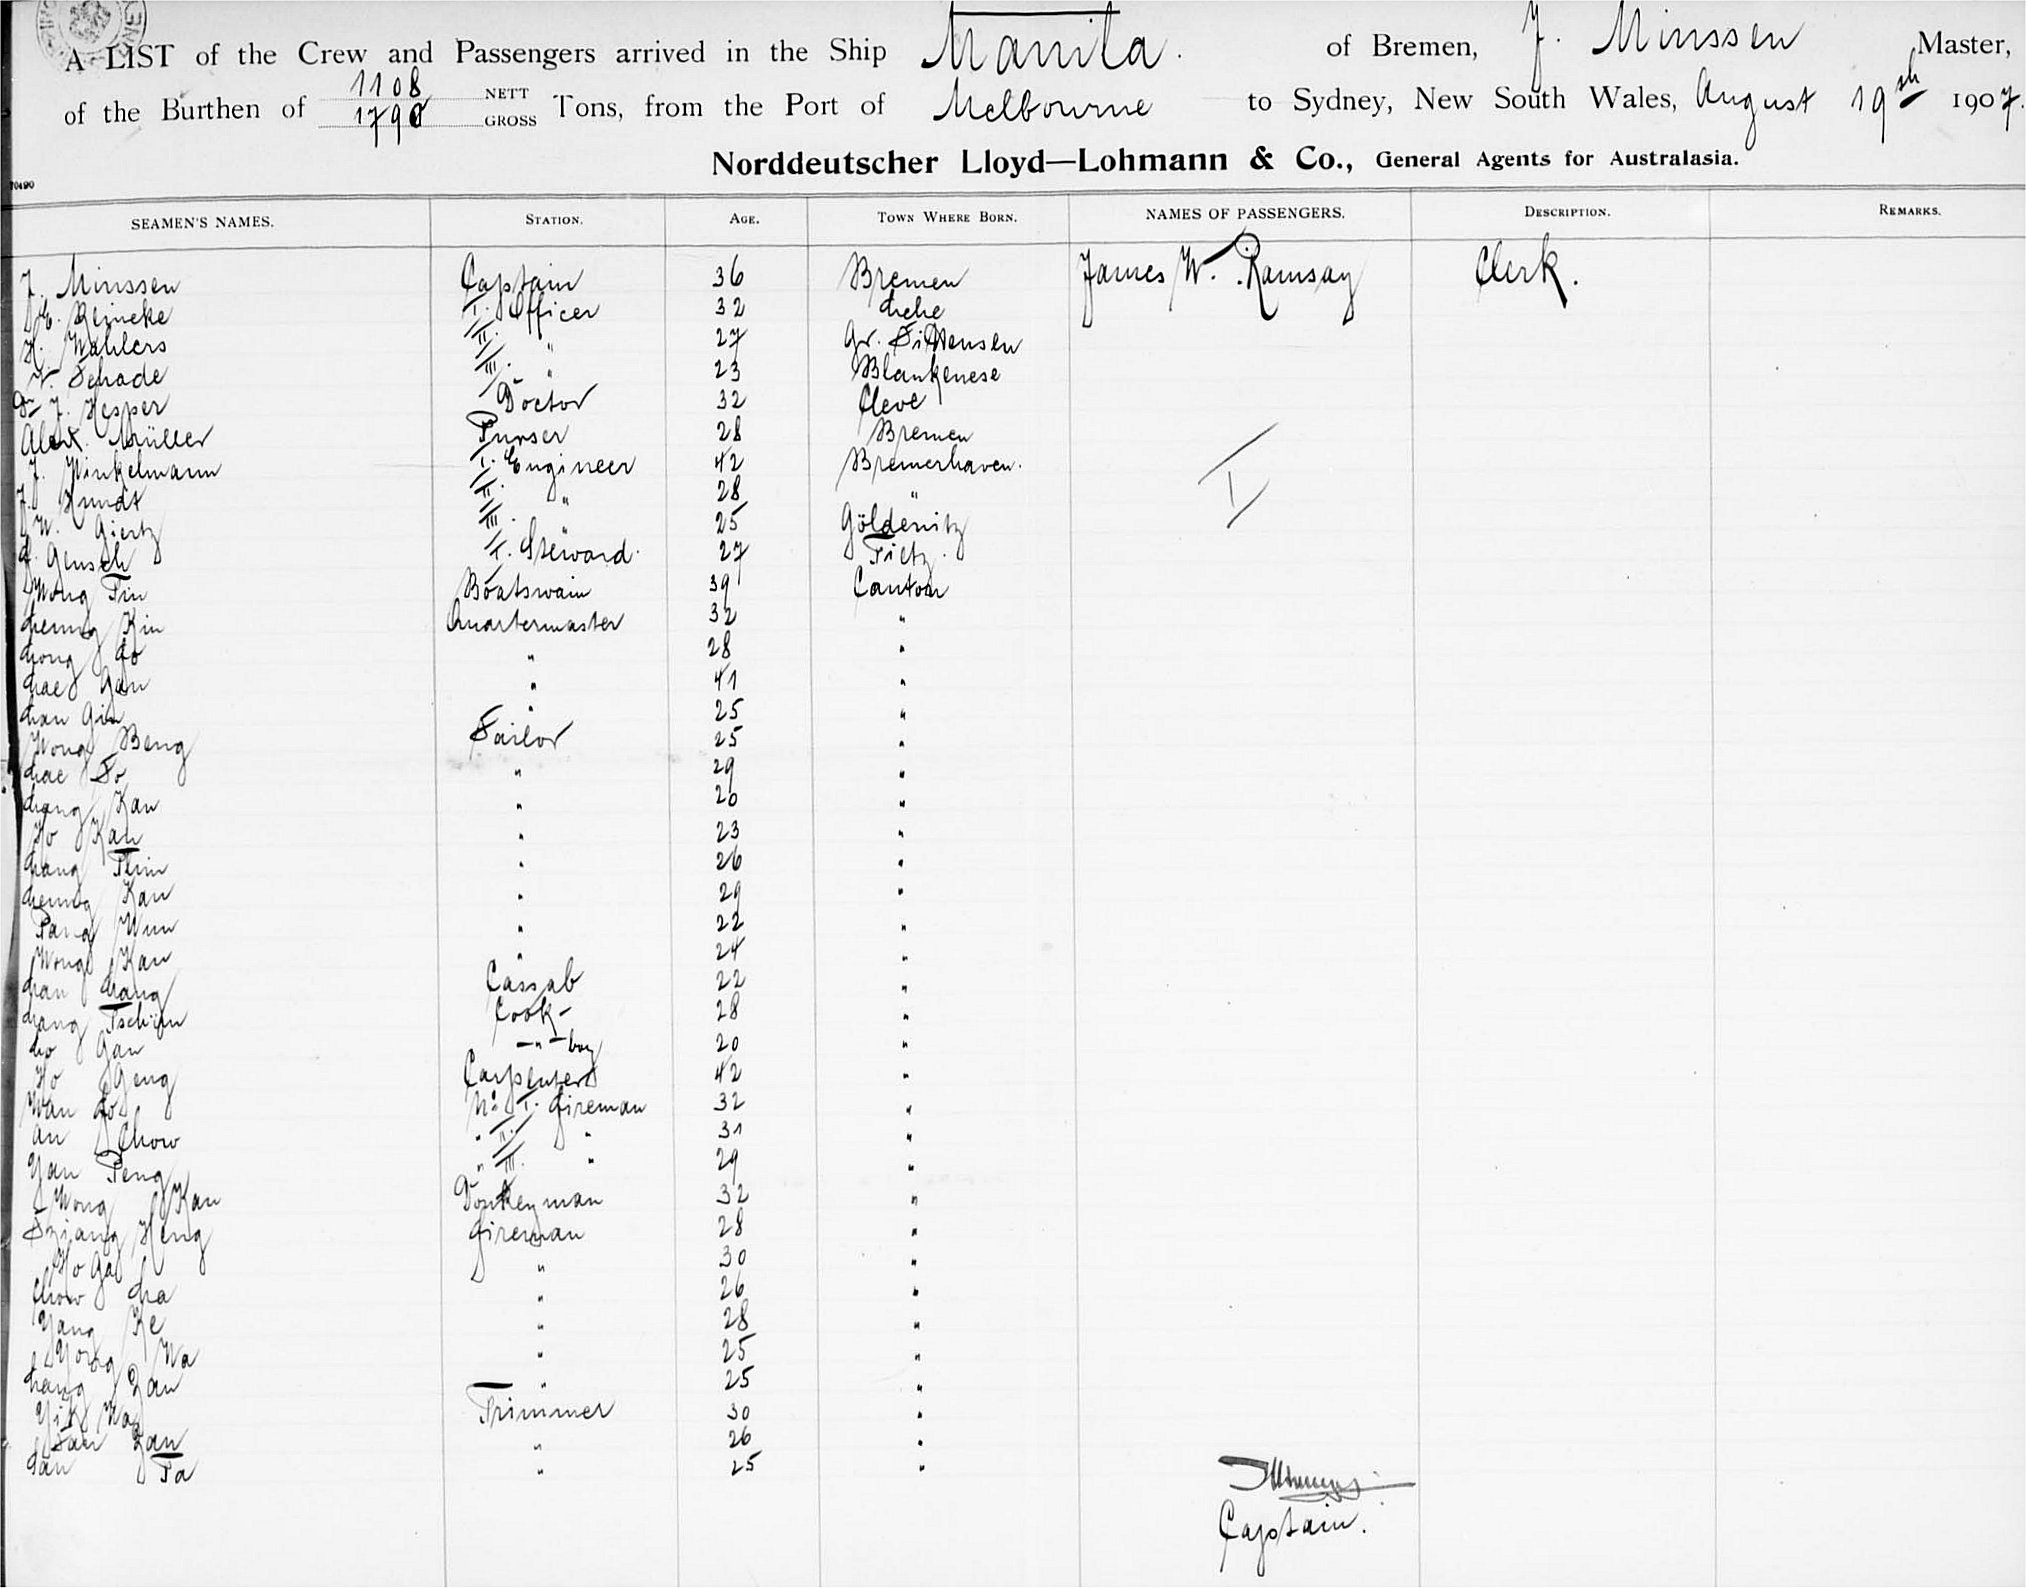 A LIST of the Crew and Passengers arrived in the Ship Manila. of Bremen, J. Minssen Master,
of the Burthen of 1108 NETT 1790 GROSS Tons, from the Port of Melbourne to Sydney, New South Wales, August 19th 1907.
Norddeutscher Lloyd—Lohmann & Co., General Agents for Australasia.
70490
SEAMEN'S NAMES. STATION. AGE. TOWN WHERE BORN. NAMES OF PASSENGERS. DESCRIPTION. REMARKS.
J. Minssen Captain 36 Bremen James W. Ramsay Clerk.
Reineke I. Officer 32 Lehe
H. Wahlers II. " 27 Gr. Sittensen
W. Schade III. " 23 Blankenese
Dr J. Hesper Doctor 32 Cleve
Alex. Müller Purser 28 Bremen
J. Winkelmann I. Engineer 42 Bremerhaven.
J. Kundt II. " 28 "
W. Giertz III. " 25 Göldenitz
Gensch I. Steward. 27 Tietz.
Wong Tin Boatswain 39 Canton
Leung Kin Quartermaster 32 "
Long So " 28 "
Lae Gan " 41 "
Lau Gin " 25 "
Wong Beng Sailor 25 "
Lae So " 29 "
Lang Kan " 20 "
Ho Kau " 23 "
Lang Thim " 26 "
Leung Kau " 29 "
Pang Wun " 22 "
Wong Kau " 24 "
Lau Lang Cassab 22 "
Lang Tschun Cook 28 "
Lo Gan -"- boy 20 "
Ho Geng Carpenter 42 "
Wan So No I. Fireman 32 "
An Chow " II. " 31 "
Yan Peng " III. " 29 "
Wong Kau Donkeyman 32 "
Sziang Heng Fireman 28 "
Ho Ga " 30 "
Chow La " 26 "
Yang Ke " 28 "
Yong Wa " 25 "
Lang Gau " 25 "
Yik Wa Trimmer 30 "
Gau " 26 "
Ta " 25 "
I
J Minssen
Captain.